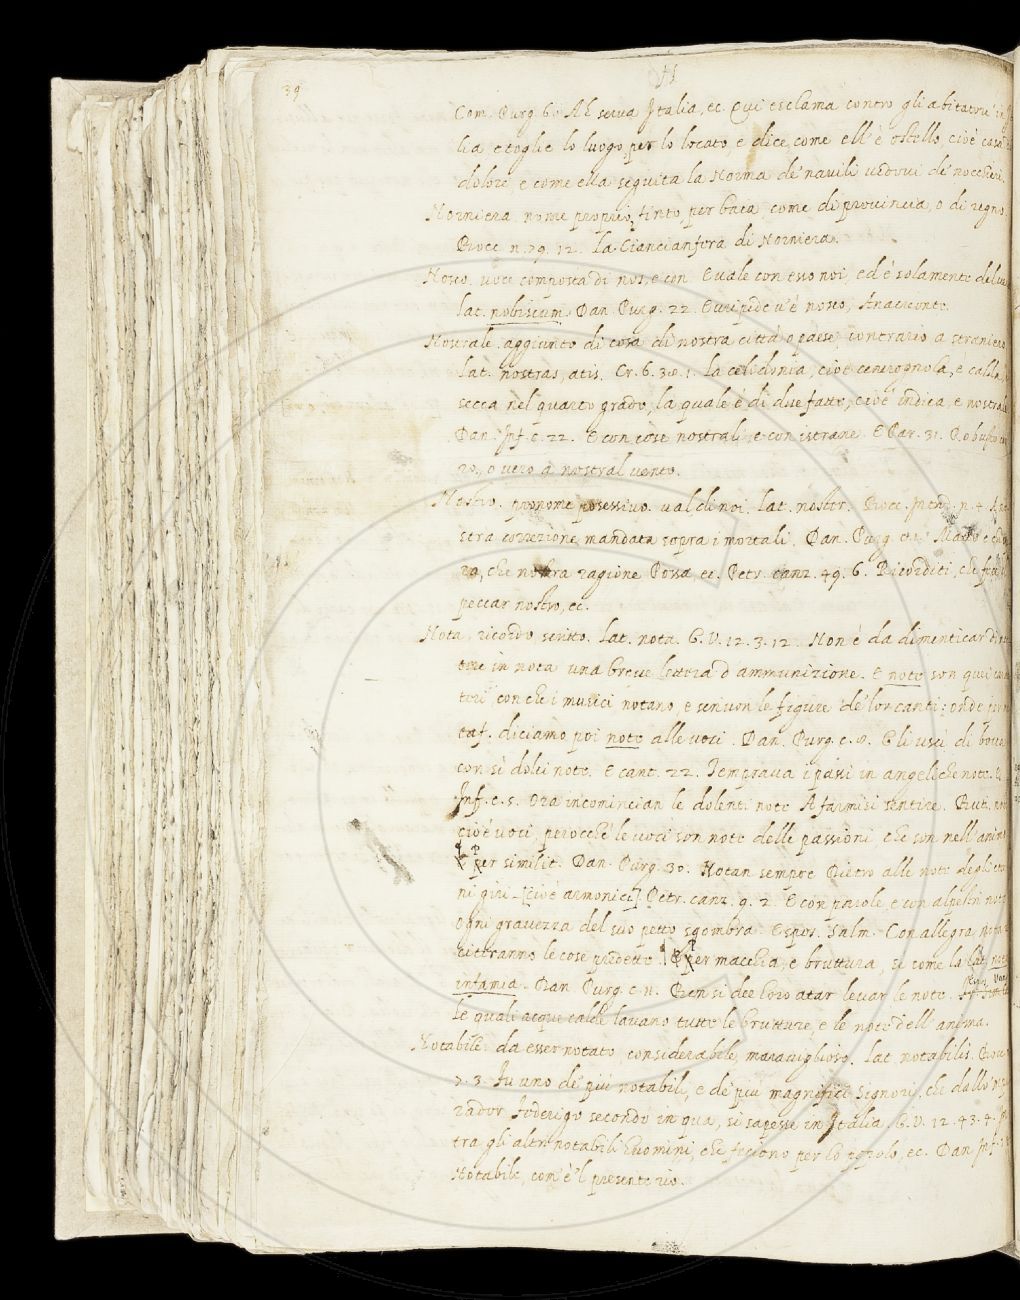 39
N
Com. Purg. 6. Ah serva Italia, ec. Qui esclama contro gli abitatori
lia e toglie lo luogo per lo locato, e dice, come ell' è ostello, cioè casa
dolore e come ella seguita la Norma de' navili vedovi de' nocchieri.
Norniera nome proprio, finto, per baia, come di provincia, o di regno.
Bocc. n. 79. 12. la Ciancianfera di Norniera.
Nosco. voce composta di nos, e con. E vale con esso noi, ed è solamente del
lat. nobiscum. Dan. Purg. 22. Euripide v'è nosco, Anacreonte.
Nostrale. aggiunto di cosa di nostra città o paese contrario a straniero
lat. nostras, atis. Cr. 6. 38. 1. la celidonia, cioè cenerognola, e calda,
secca nel quarto grado, la quale è di due fatte, cioè indica, e nostrale
Dan. Inf. c. 22. E con cose nostrali e con istrane. E Par. 31. Robusto
ro, o vero a nostral vento.
Nostro. pronome possessivo. val di noi. lat. noster. Bocc. Intr. n. 4.
stra correzione mandata sopra i mortali. Dan. Purg. Matto è chi
ra, che nostra ragione Possa ec. Petr. canz. 49. 6. Ricorditi, che fece
peccar nostro, ec.
Nota. ricordo scritto. lat. nota. G. V. 12. 3. 12. Non è da dimenticar di
in nota una breve lettera d'ammunizione. E note son quei
teri con che i musici notano, e scrivon le figure de' lor canti; onde
taf. diciamo poi note alle voci. Dan. Purg. c. 8. Gli uscì di bocca
con sì dolci note. E cant. 22. Temprava i passi in angeliche note. E
Inf. c. 5. Ora incomincian le dolenti note A farmisi sentire. But. note
cioè voci, perocchè le voci son note delle passioni che son nell'animo
per similit. Dan. Purg. 30. Notan sempre Dietro alle note degli eter
ni giri [cioè armonici] Petr. canz. 9. 2. E con parole, e con alpestri note
Ogni gravezza del suo petto sgombra. Espos. Salm. Con allegra nota
citeranno le cose predette. per macchia, e bruttura, sì come la lat.
infamia. Dan. Purg. c. 11. Ben si dee loro atar levar le note.
le quali acque calde lavano tutte le brutture, e le note dell'anima.
Notabile. da esser notato, considerabile, maraviglioso. lat. notabilis. Bocc.
7. 3. Fu uno de' più notabili, e de' più magnifici Signori, che dallo 'mpe
rador Federigo secondo in qua, si sapesse in Italia. G. V. 12. 43. 4.
tra gli altri notabili huomini, che feciono per lo popolo, ec. Dan Inf.
Notabile, com'è 'l presente rio.